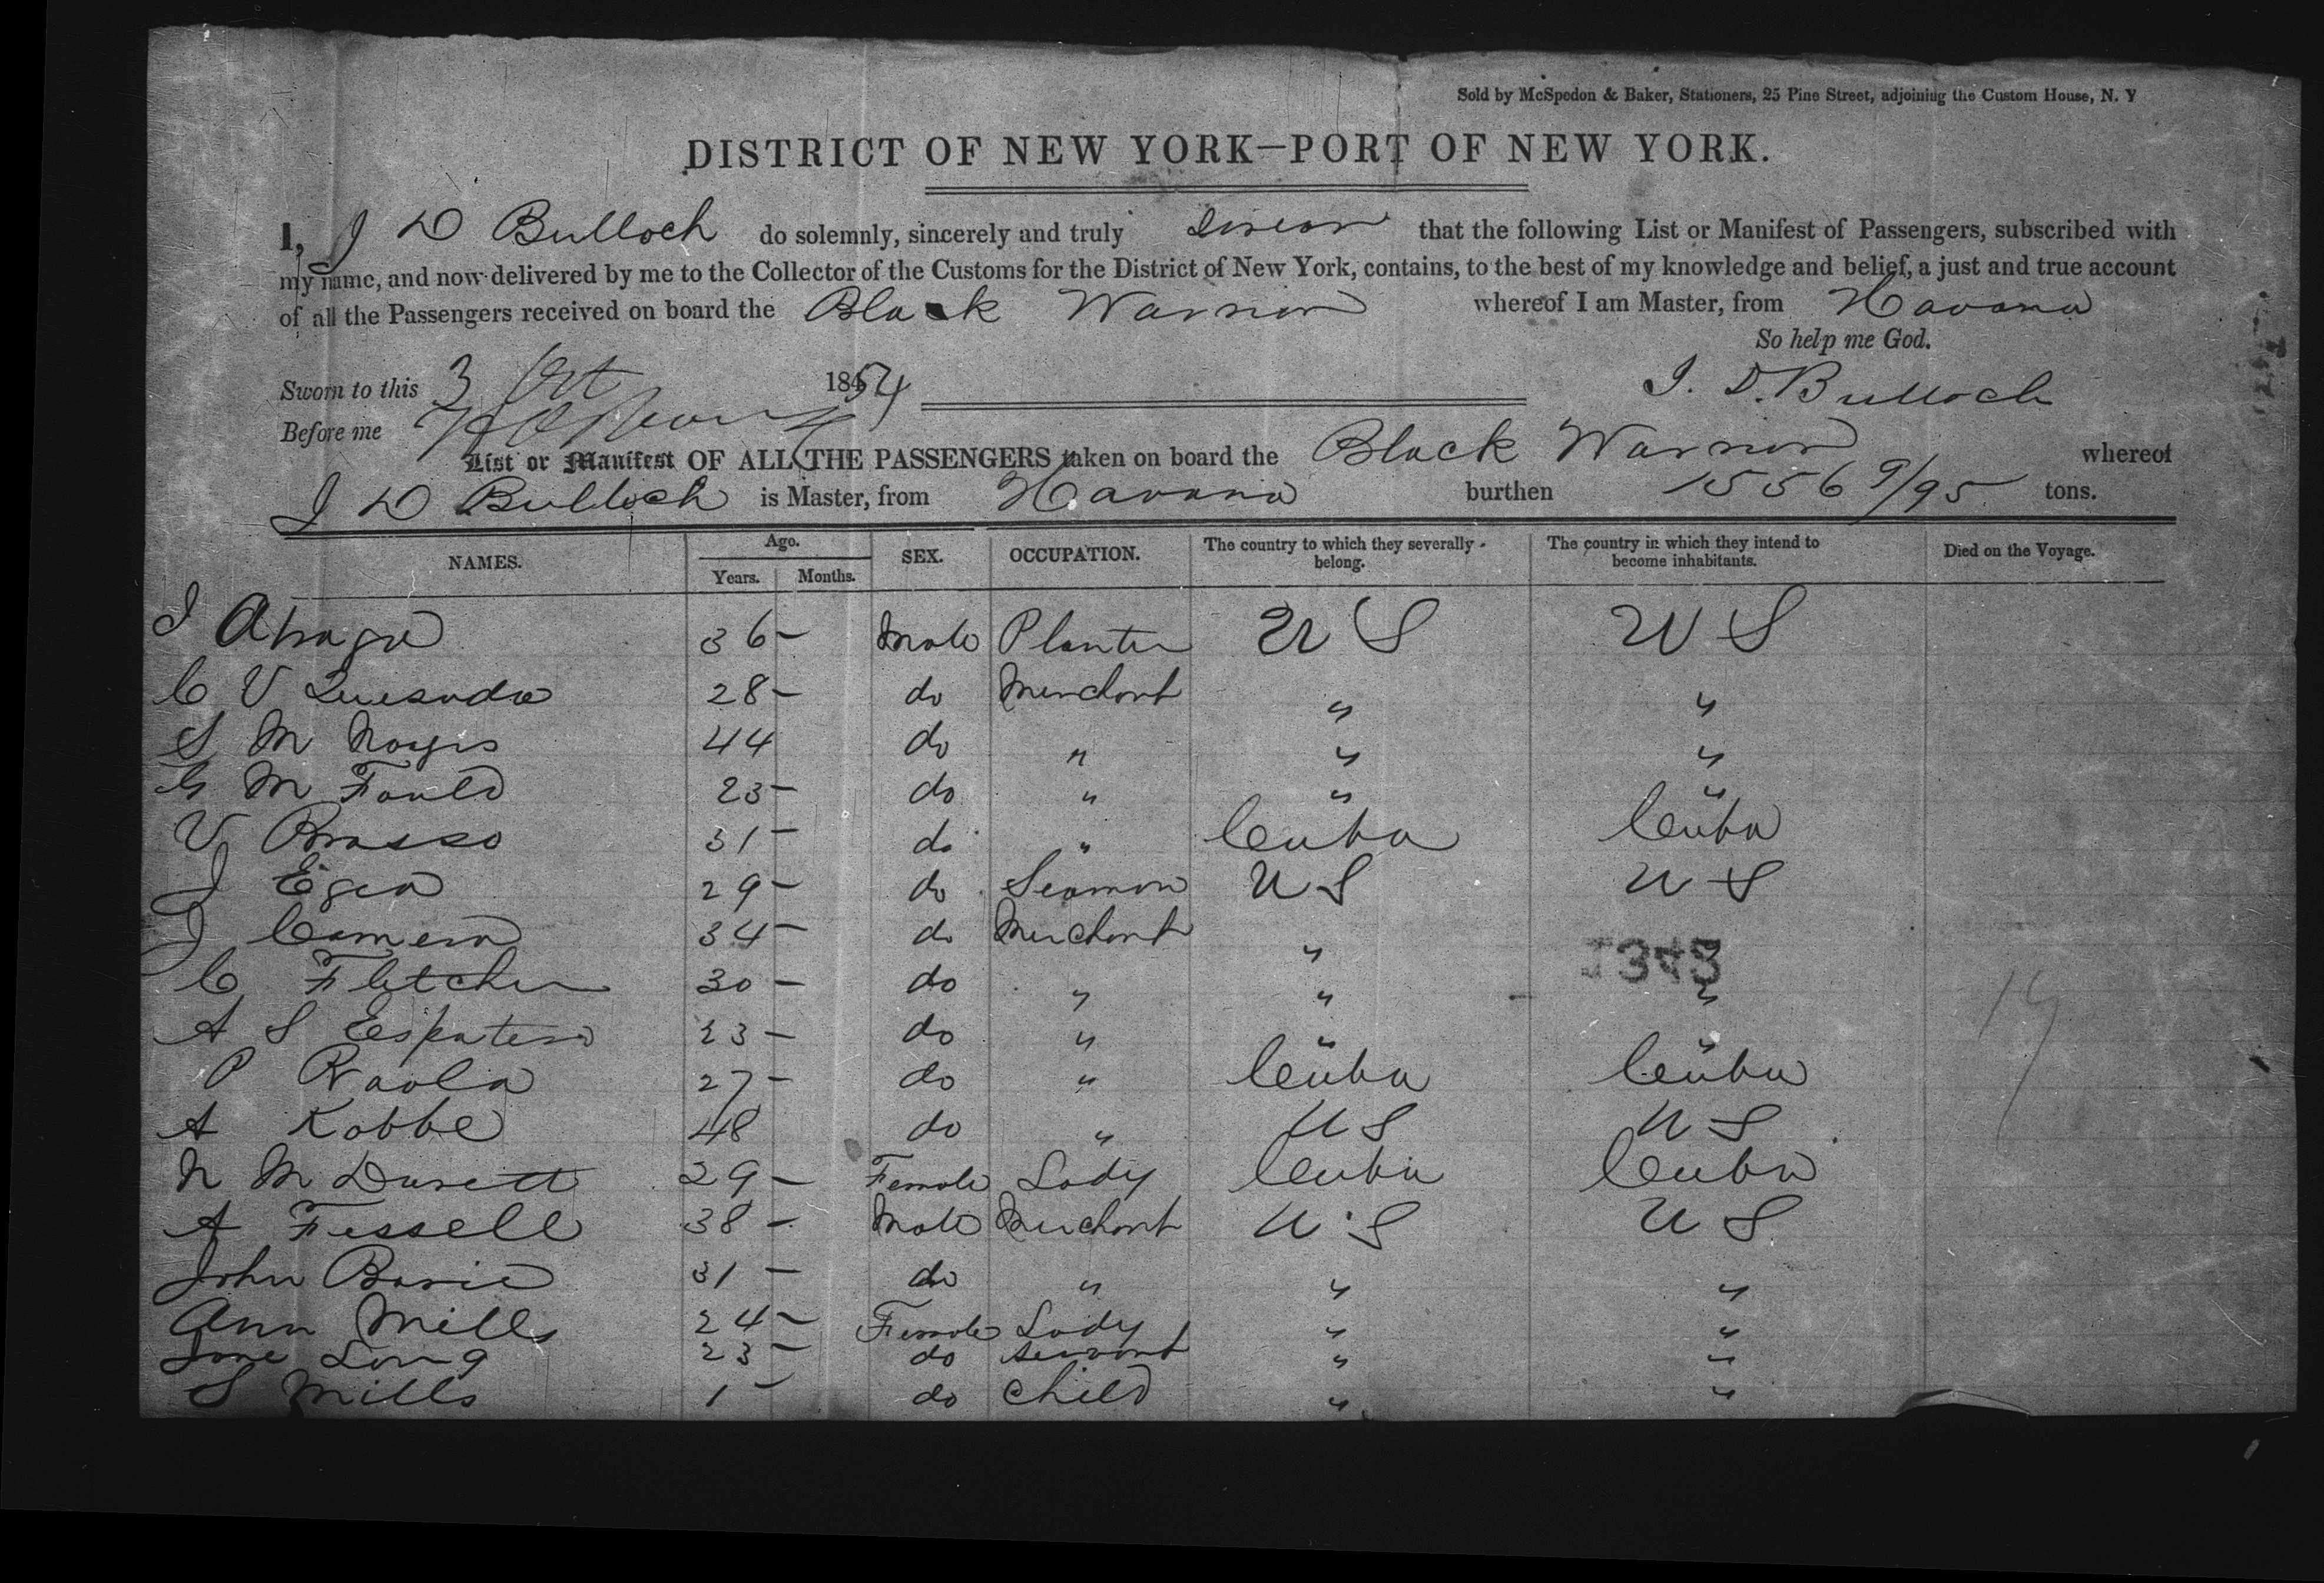 Sold by McSpedon & Baker, Stationers, 25 Pine Street, adjoining the Custom House, N. Y
DISTRICT OF NEW YORK—PORT OF NEW YORK.
I, J D Bulloch do solemnly, sincerely and truly swear that the following List or Manifest of Passengers, subscribed with
my name, and now delivered by me to the Collector of the Customs for the District of New York, contains, to the best of my knowledge and belief, a just and true account
of all the Passengers received on board the Black Warrior whereof I am Master, from Havana
So help me God.
Sworn to this 3 Oct 1854 J. D. Bulloch
Before me
List or Manifest OF ALL THE PASSENGERS taken on board the Black Warrior whereof
J D Bulloch is Master, from Havana burthen 1556 9/95 tons.
NAMES. Age. Years. Months. SEX. OCCUPATION. The country to which they severally belong. The country in which they intend to become inhabitants. Died on the Voyage.
J 36 – Male Planter U S U S
C V Quesada 28 – do Merchant " "
S M Noyes 44 do " " "
G M Fould 23 – do " " "
V Brasso 31 – do " Cuba Cuba
J Egea 29 – do Seaman U S U S
J Camera 34 – do Merchant " "
C Fletcher 30 – do " " "
A S Espatero 23 – do " " "
P Raola 27 – do " Cuba Cuba
A Kobbe 48 do " U S U S
N M Durett 29 – Female Lady Cuba Cuba
A Fessell 38 – Male Merchant U S U S
John Barie 31 – do " " "
Ann Mills 24 – Female Lady " "
Jane Long 23 – do Servant " "
S Mills 1 – do Child " "